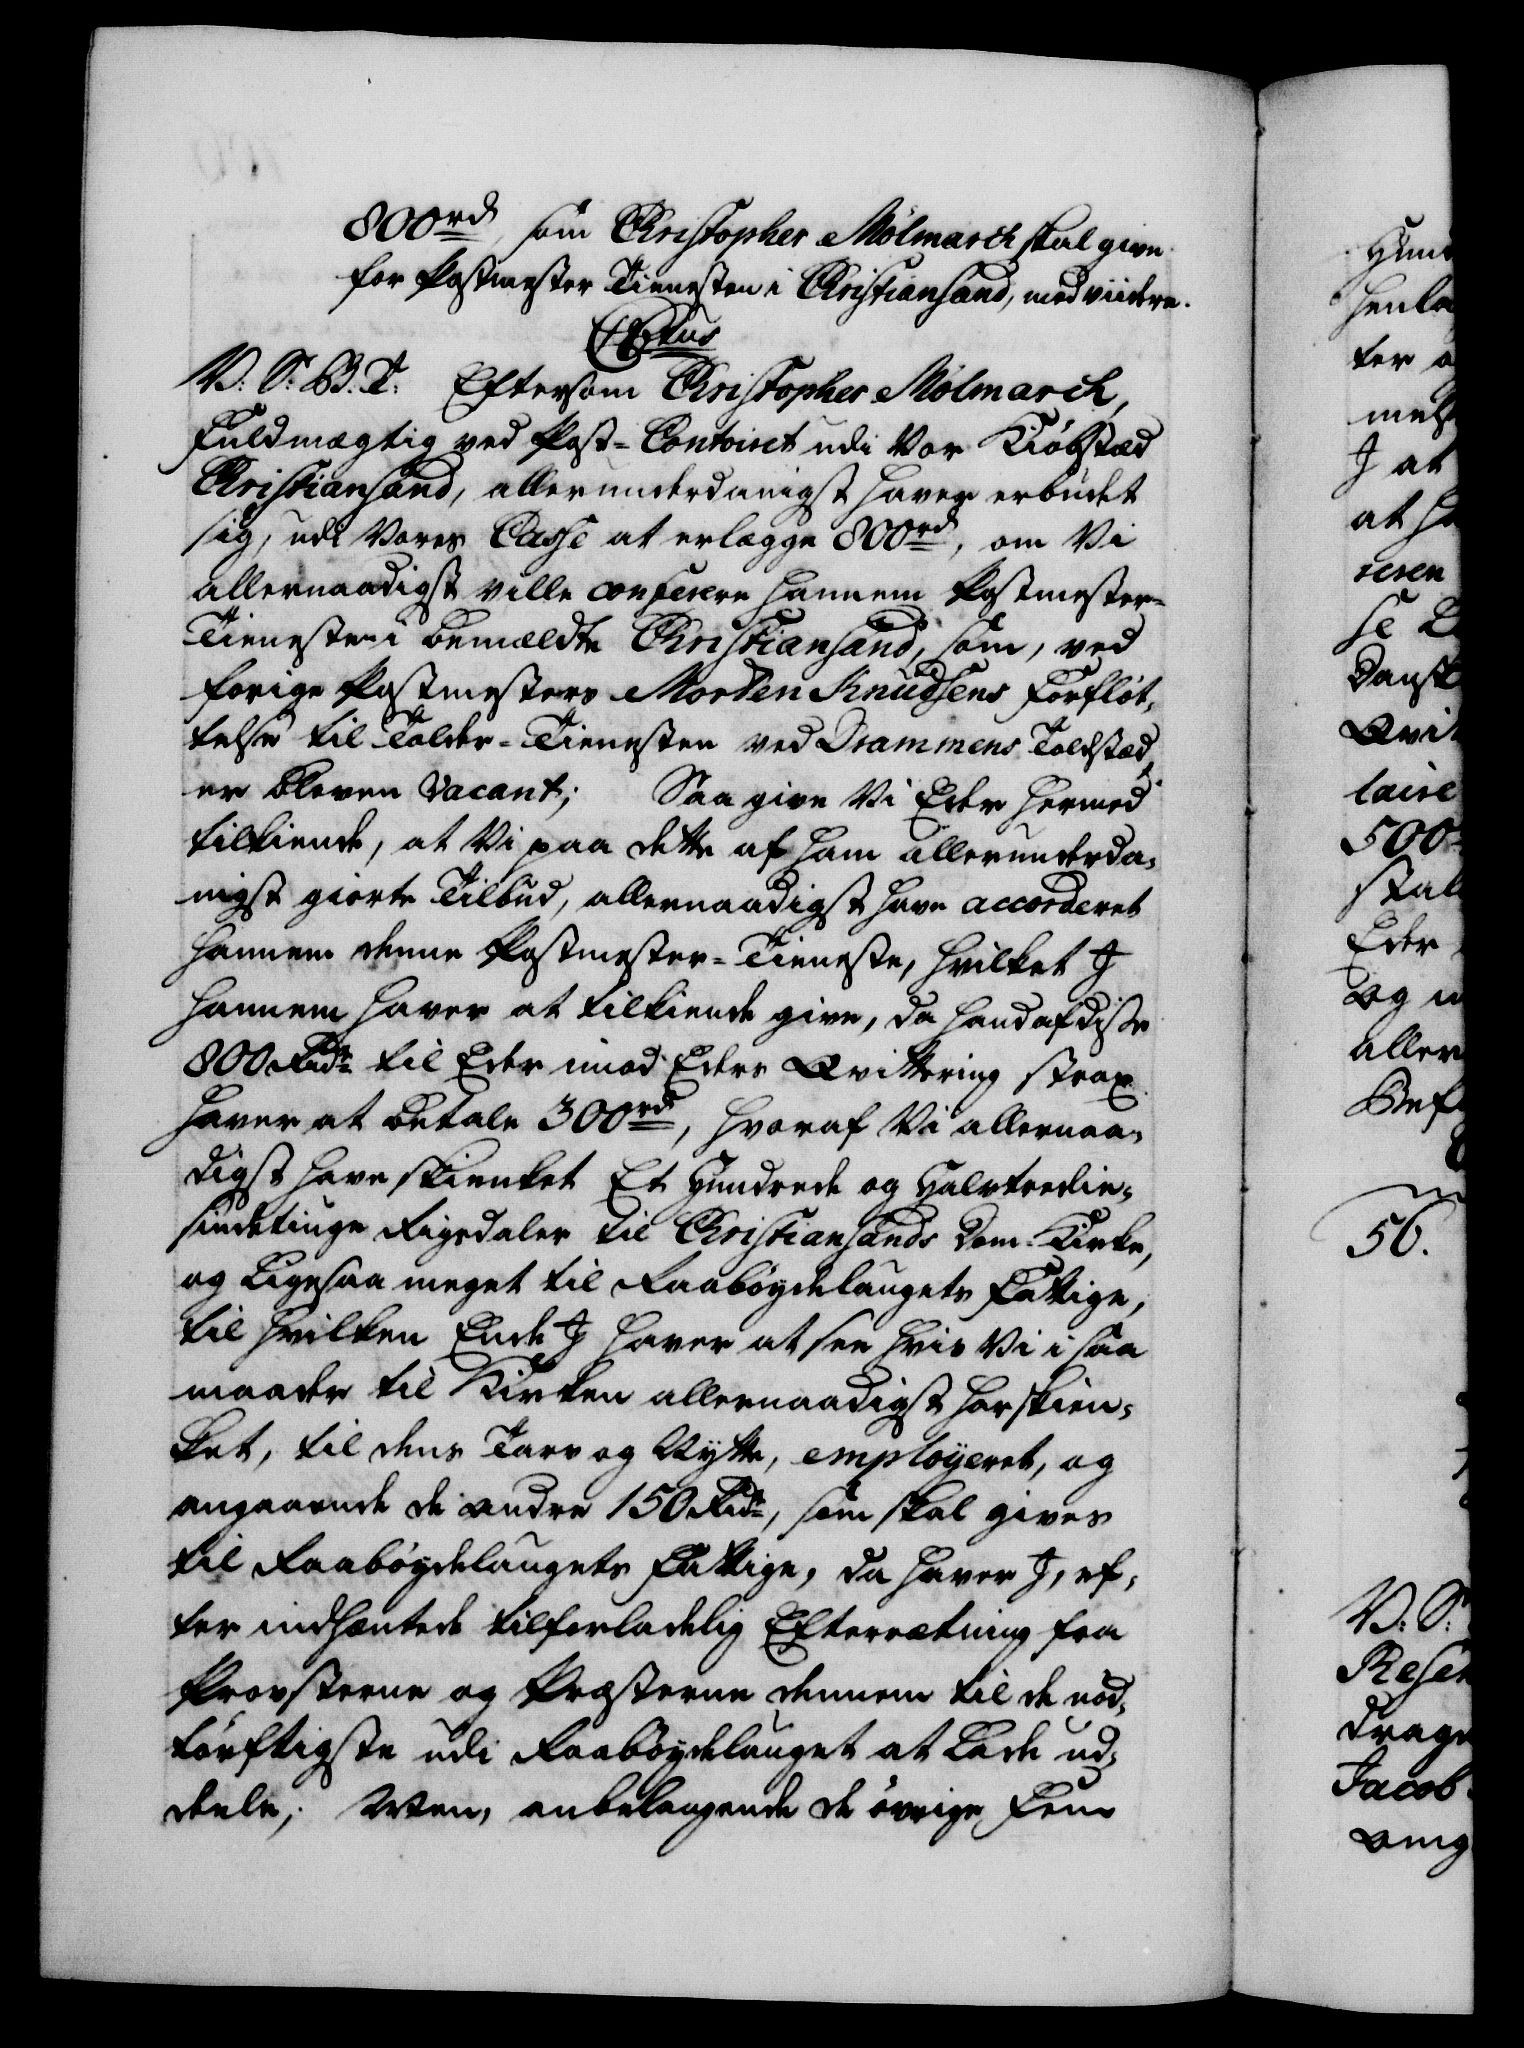 800rd, som Christopher Mølmarch skal give
for Postmester Tienesten i Christiansand, med viidere.
CStus
V: S: B: T: Eftersom Christopher Mølmarch,
Fuldmægtig ved Post-Contoiret udi Vor Kiøbstæd
Christiansand, allerunderdanigst haver erbudet
sig, udi Vores Casse at erlægge 800rd, om Vi
allernaadigst ville conferere hannem Postmester-
Tienesten i bemældte Christiansand, som, ved
forige Postmesters Morten Knudsens Forfløt-
telse til Tolder-Tienesten ved Drammens Toldstæd,
er bleven vacant; Saa give Vi Eder hermed
tilkiende, at Vi paa dette af ham allerunderda-
nigst giorte Tilbud, allernaadigst have accorderet
hannem denne Postmester-Tieneste, hvilket J
hannem haver at tilkiende give, da hand af disse
800 Rdr til Eder imod Eders Qvittering strax
haver at betale 300rd, hvoraf Vi allernaa-
digst have skienket Et Hundrede og Halvtredie-
sindetiuge Rigsdaler til Christiansands Dom-Kirke,
og Ligesaa meget til Raabøydelaugets Fattige,
til hvilken Ende J haver at see hvis Vi i saa
maader til Kirken allernaadigst har skien-
ket, til dens Tarv og Nytte, employeret, og
angaaende de andre 150 Rdr, som skal gives
til Raabøydelaugets Fattige, da haver J, ef-
ter indhæntede tilforladelig Efterrætning fra
Provsterne og Præsterne dennem til de nød-
tørftigste udi Raabøydelauget at Lade ud-
deele; Men, anbelangende de øvrige Fem